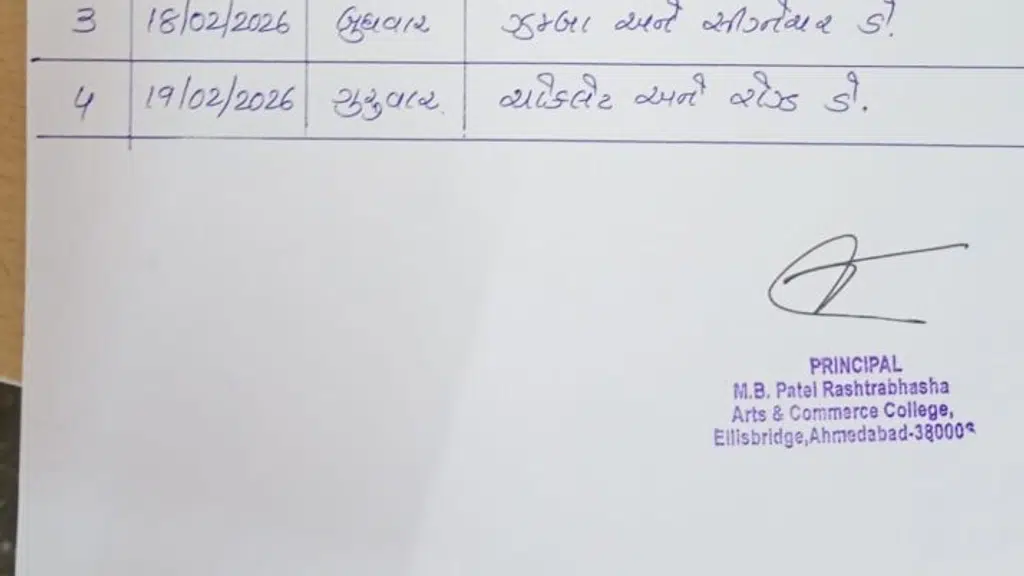 3 18/02/2026 બુધવાર ઝુમ્બા અને સીગ્નેચર ડે.
4 19/02/2026 ગુરુવાર ચોકલેટ અને રોઝ ડે.
PRINCIPAL
M.B. Patel Rashtrabhasha
Arts & Commerce College,
Ellisbridge,Ahmedabad-38000